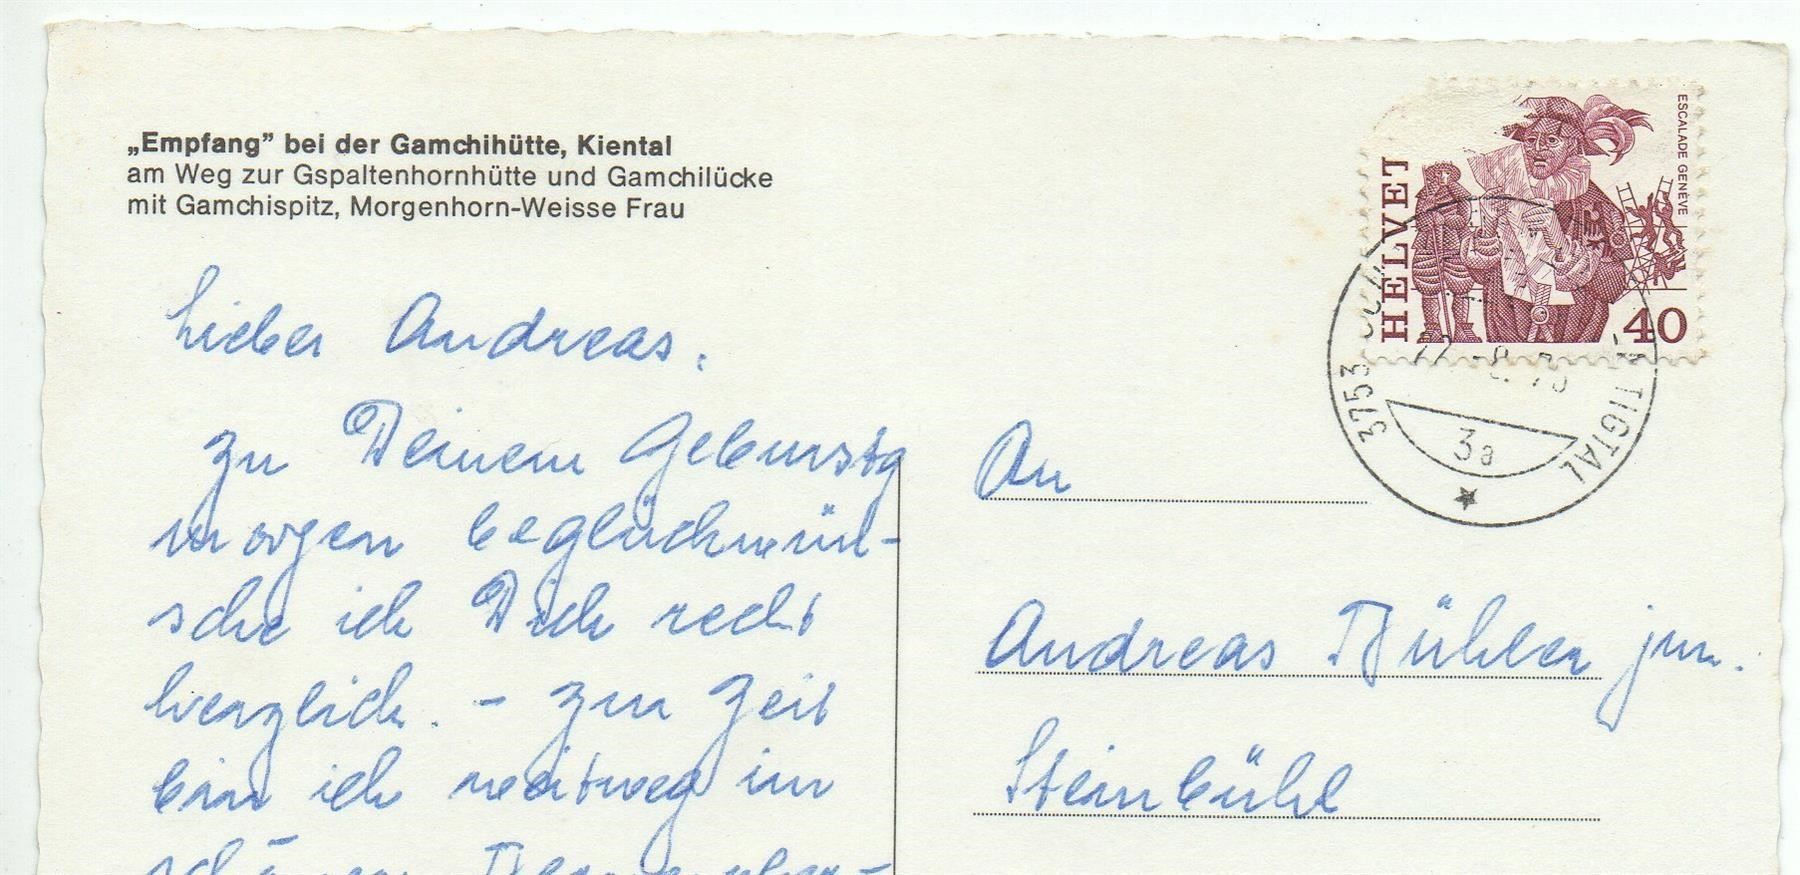 „Empfang” bei der Gamchihütte, Kiental
am Weg zur Gspaltenhornhütte und Gamchilücke
mit Gamchispitz, Morgenhorn-Weisse Frau
Lieber Andreas.
Zu Deinem Geburstg
morgen beglückwün-
sche ich Dich recht
herzlich. - Zur Zeit
bin ich weitweg im
schönen
ESCALADE GENÈVE
HELVET
40
3753
TIGTAL
3a
An
Andreas Bühler jun.
Steinbühl